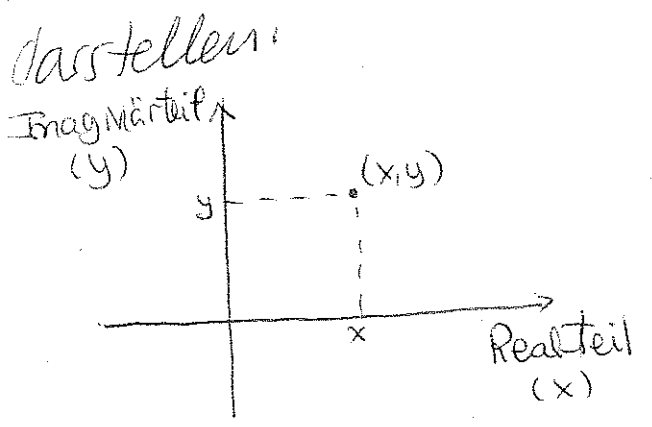 darstellen.
Imaginärteil
(y)
(x,y)
y
x
Realteil
(x)